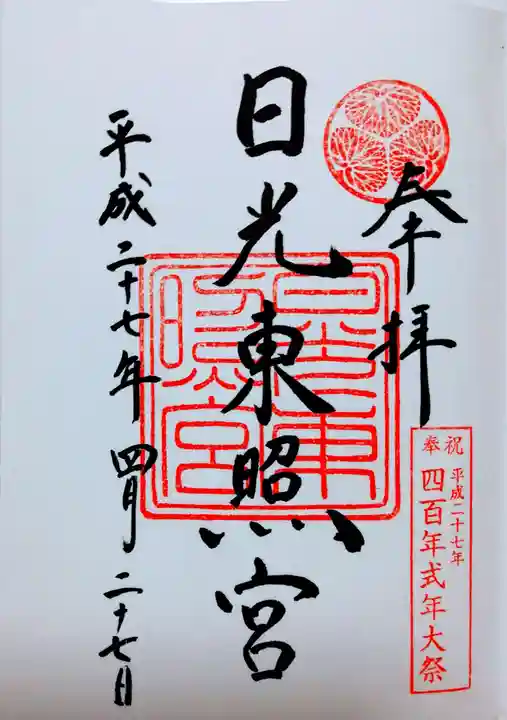 奉拝
奉祝
平成二十七年
四百年式年大祭
日光東照宮
平成二十七年四月二十七日